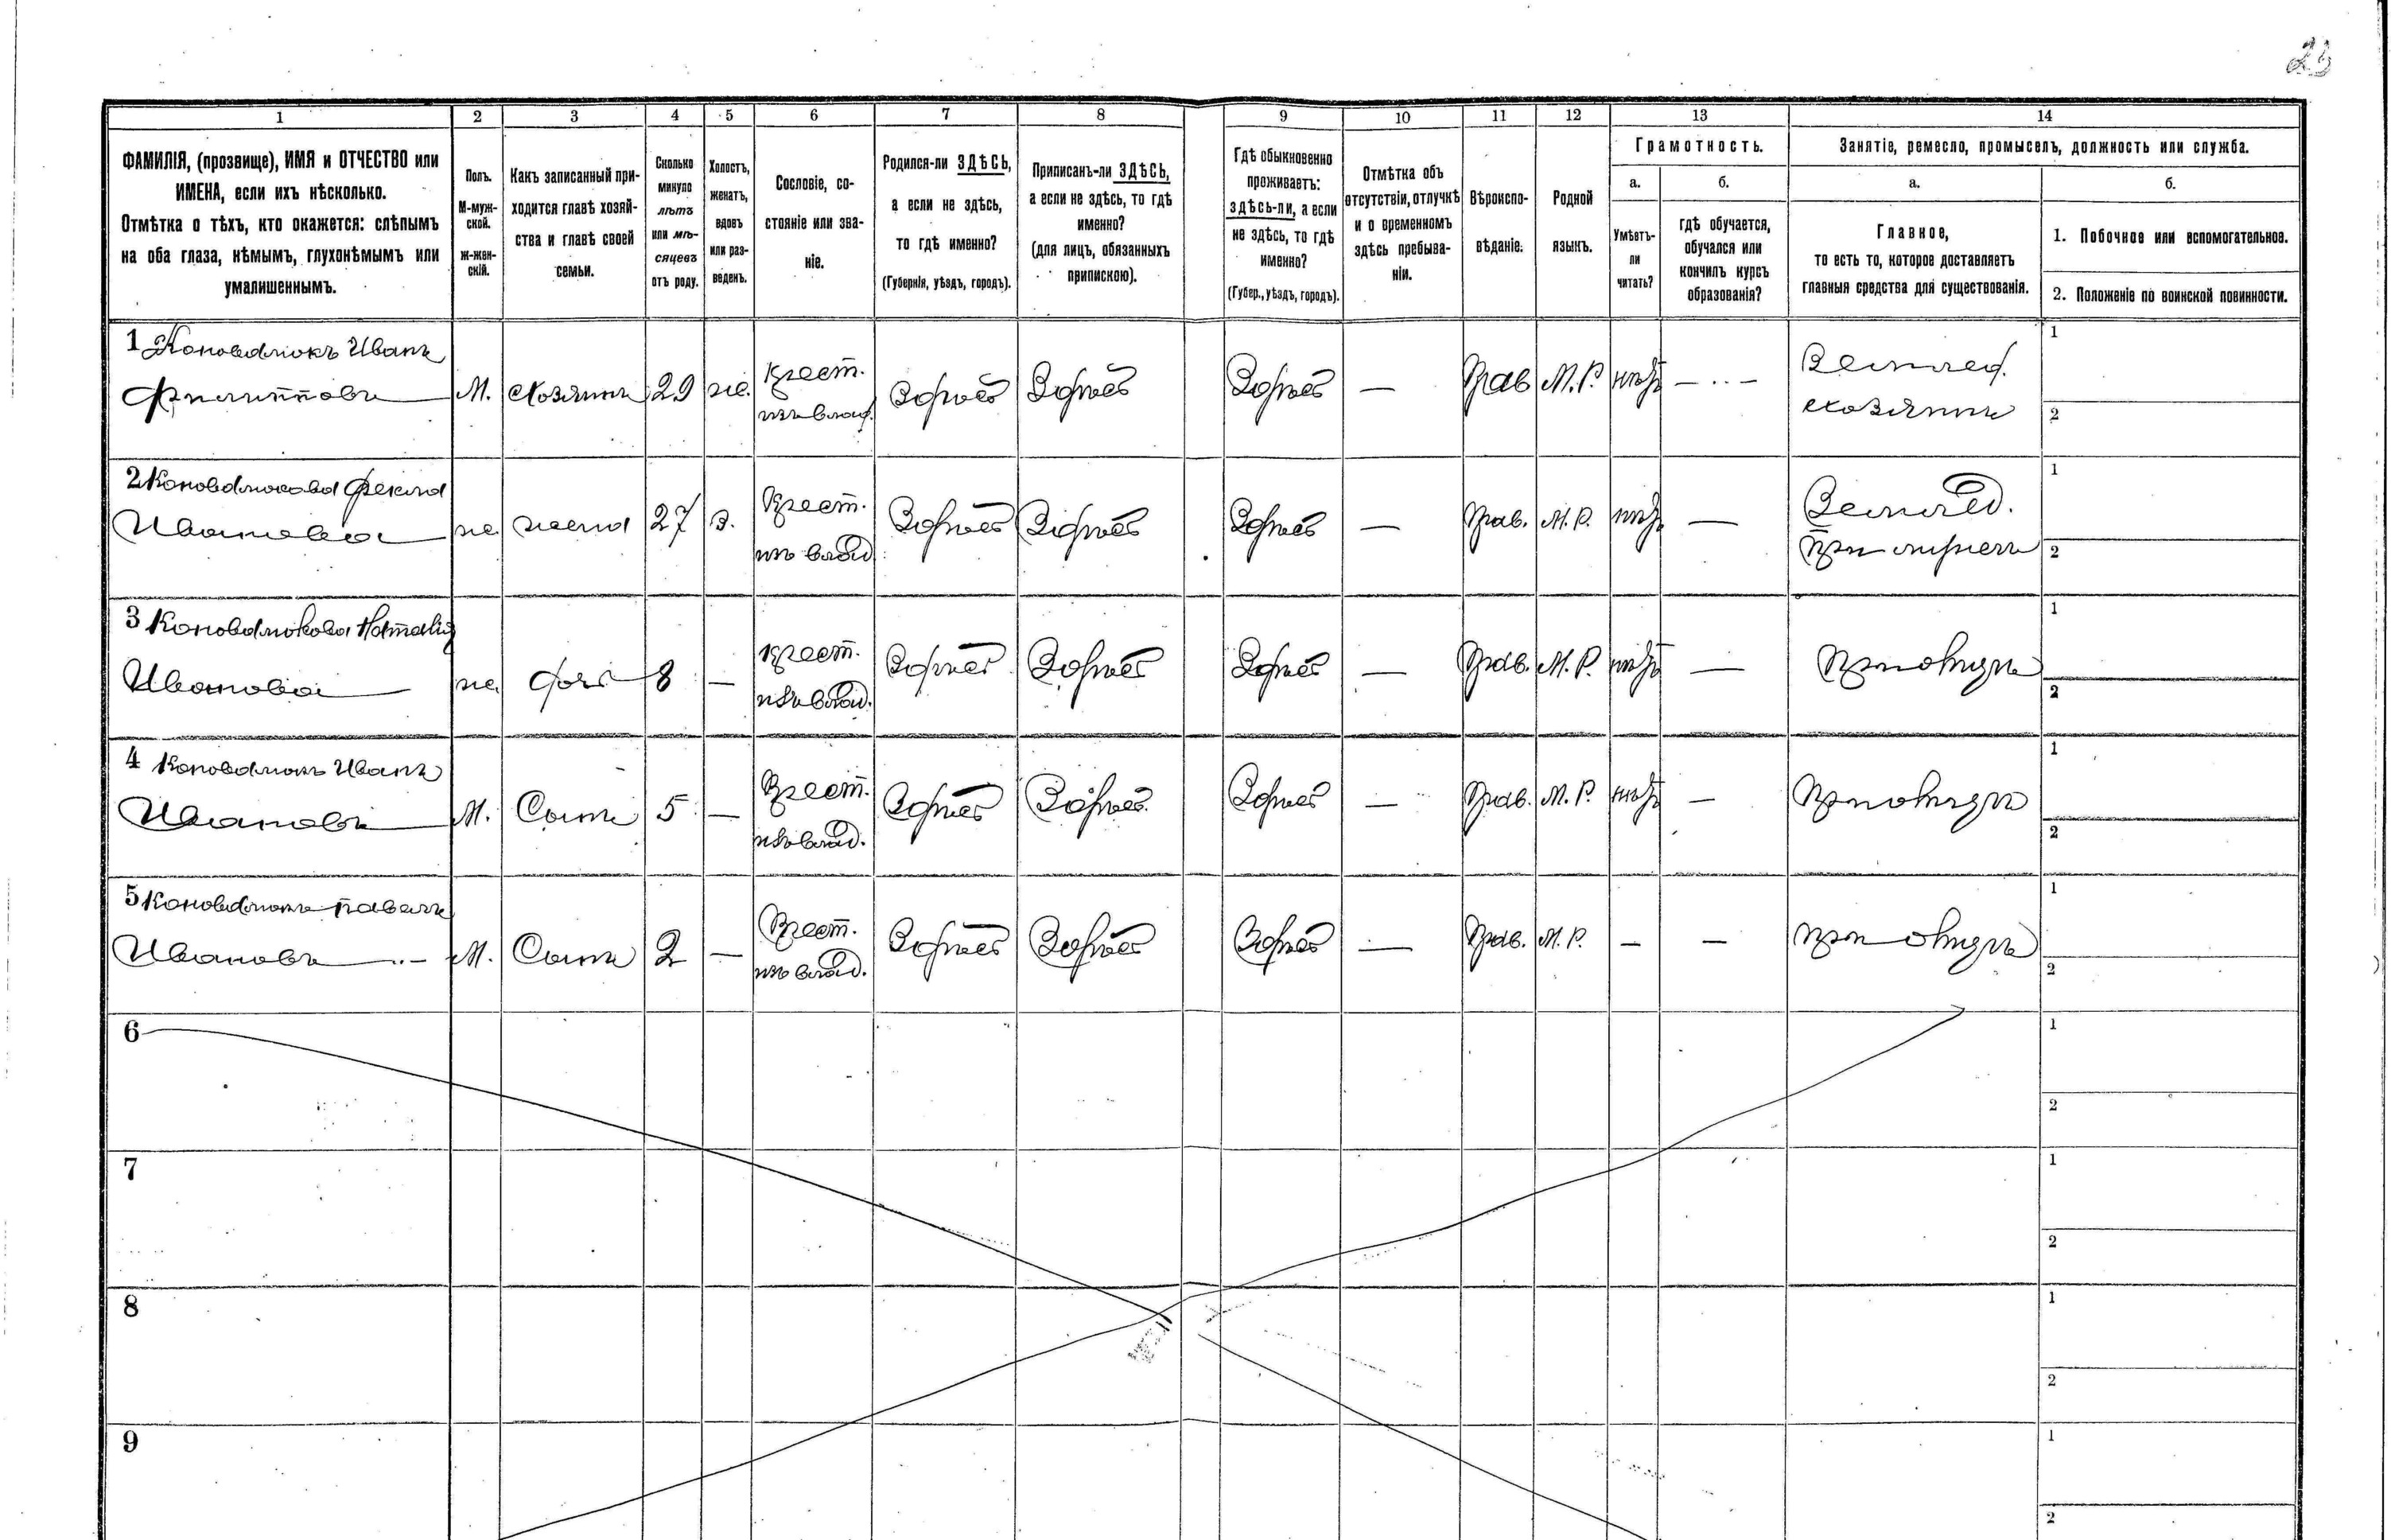 23
1 2 3 4 5 6 7 8 9 10 11 12 13 14
ФАМИЛІЯ, (прозвище), ИМЯ и ОТЧЕСТВО или
ИМЕНА, если ихъ нѣсколько.
Отмѣтка о тѣхъ, кто окажется: слѣпымъ
на оба глаза, нѣмымъ, глухонѣмымъ или
умалишеннымъ.
Полъ.
М-муж-
ской.
ж-жен-
скій.
Какъ записанный при-
ходится главѣ хозяй-
ства и главѣ своей
семьи.
Сколько
минуло
лѣтъ
или мѣ-
сяцевъ
отъ роду.
Холостъ,
женатъ,
вдовъ
или раз-
веденъ.
Сословіе, со-
стояніе или зва-
ніе.
Родился-ли ЗДѢСЬ,
а если не здѣсь,
то гдѣ именно?
(Губернія, уѣздъ, городъ).
Приписанъ-ли ЗДѢСЬ,
а если не здѣсь, то гдѣ
именно?
(для лицъ, обязанныхъ
припискою).
Гдѣ обыкновенно
проживаетъ:
здѣсь-ли, а если
не здѣсь, то гдѣ
именно?
(Губер., уѣздъ, городъ).
Отмѣтка объ
отсутствіи, отлучкѣ
и о временномъ
здѣсь пребыва-
ніи.
Вѣроиспо-
вѣданіе.
Родной
языкъ.
Грамотность.
а.
Умѣетъ-
ли
читать?
б.
гдѣ обучается,
обучался или
кончилъ курсъ
образованія?
Занятіе, ремесло, промыселъ, должность или служба.
а.
Главное,
то есть то, которое доставляетъ
главныя средства для существованія.
б.
1. Побочное или вспомогательное.
2. Положеніе по воинской повинности.
1 Коновалюкъ Иванъ
Филипповъ — М. хозяинъ 29 же. Крест. Здѣсь Здѣсь Здѣсь — Прав М.Р. нѣтъ — Землед. 1
изъ влад. хозяинъ 2
2 Коновалюкова Фекла
Иванова — же жена 27 з. Крест. Здѣсь Здѣсь Здѣсь — Прав. М.Р. нѣтъ — Землед. 1
изъ влад. при мужѣ 2
3 Коновалюкова Наталія
Иванова — же дочь 8 — Крест. Здѣсь Здѣсь Здѣсь — Прав. М.Р. нѣтъ — при отцѣ 1
изъ влад. 2
4 Коновалюкъ Иванъ
Ивановъ — М. Сынъ 5 — Крест. Здѣсь Здѣсь Здѣсь — Прав. М.Р. нѣтъ — при отцѣ 1
изъ влад. 2
5 Коновалюкъ Павелъ
Ивановъ — М. Сынъ 2 — Крест. Здѣсь Здѣсь Здѣсь — Прав. М.Р. — — при отцѣ 1
изъ влад. 2
6 1
2
7 1
2
8 1
2
9 1
2